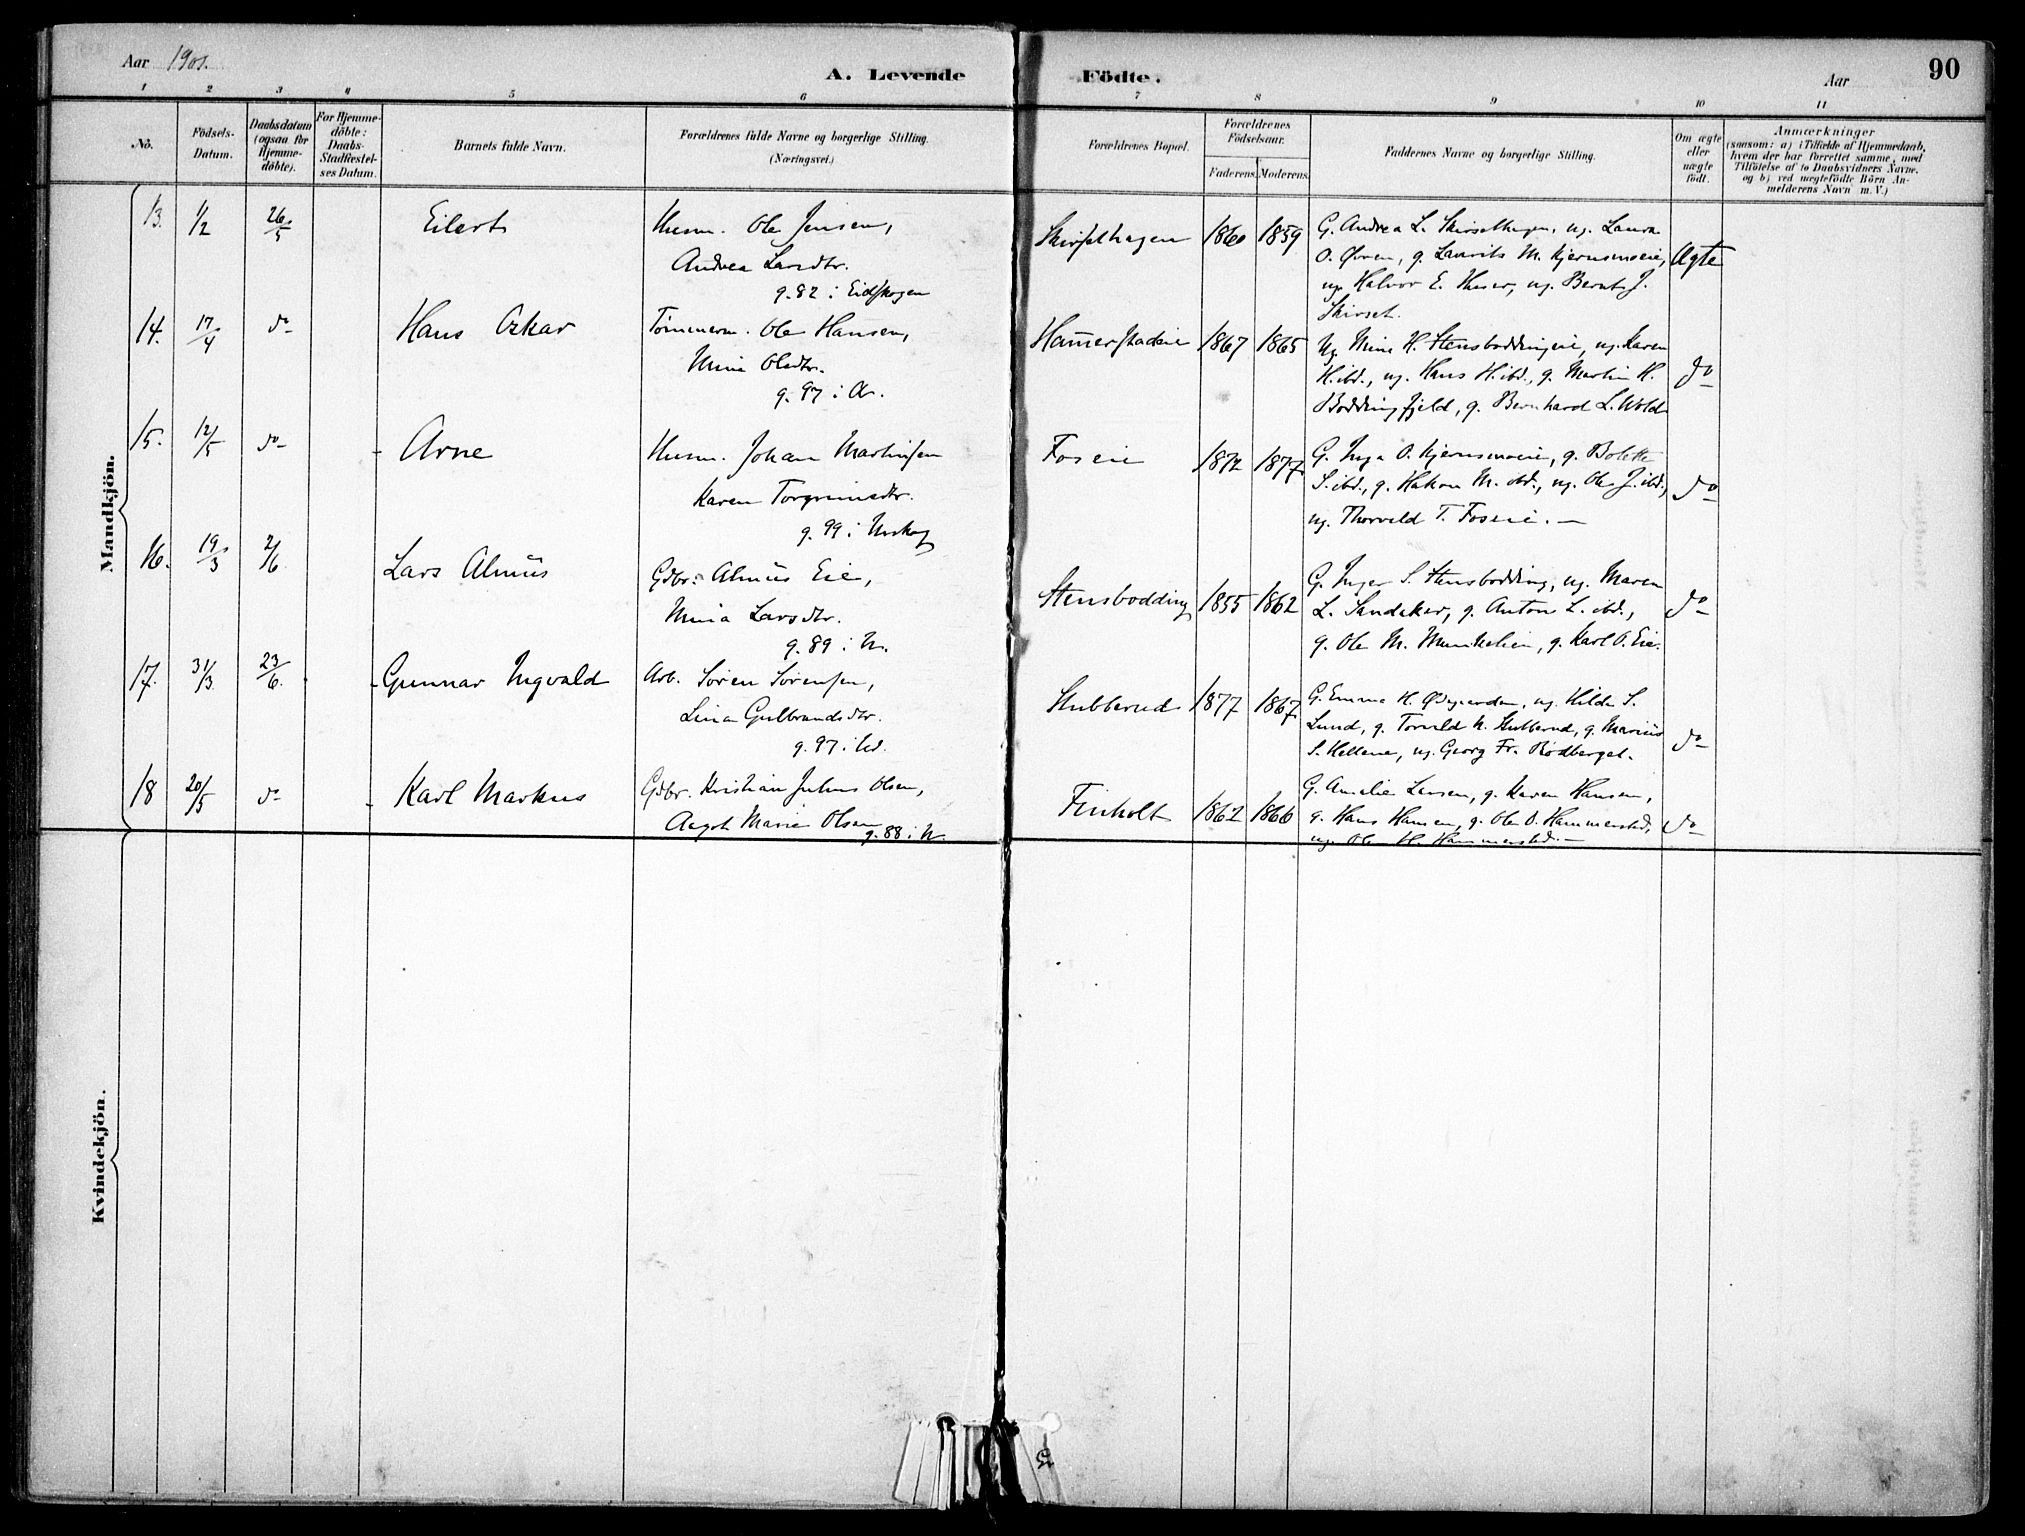 Aar 1901.
A. Levende Födte.
Aar
90
1 2 3 4 5 6 7 8 9 10 11
No.
Födsels-Datum.
Daabsdatum (ogsaa for Hjemme-döbte).
For Hjemme-döbte: Daabs-Stadfæstel-ses Datum.
Barnets fulde Navn.
Forældrenes fulde Navne og borgerlige Stilling.
(Næringsvei.)
Forældrenes Bopæl.
Forældrenes Födselsaar.
Faderens. Moderens.
Faddernes Navne og borgerlige Stilling.
Om ægte eller uægte födt.
Anmærkninger
(saasom: a) i Tilfælde af Hjemmedaab,
hvem der har forrettet samme, med
Tilföielse af to Daabsvidners Navne.
og b) ved uægtefödte Börn An-
melderens Navn m. V.)
Mandkjön.
13. 1/2 26/5 Eilert Husm. Ole Jensen, Skirselhagen 1860 1859 G. Andrea L. Skirselhagen, ug. Laura
Andrea Larsdtr. O. Øvren, g. Laurits M. Kjernsmoeie, Ægte
g. 82 i Eidskogen ug. Halvor E. Huser, ug. Bernt J.
Skirset.
14. 17/4 do Hans Oskar Tømmerm. Ole Hansen, Hammerstadeie 1867 1865 Ug. Mina H. Stensboddingeie, ug. Karen
Mina Olsdtr. H. ibd., ug. Hans H. ibd., g. Martin H. do
g. 97 i A. Boddingfjeld, g. Bernhard L. Wold
15. 12/5 do Arne Husm. Johan Martinsen Foseie 1872 1877 G. Inga O. Kjernsmoeie, g. Bolette
Karen Torgrimsdtr. S. ibd., g. Hakon M. ibd., ug. Ole J. ibd., do
g. 99 i Urskog ug. Thorvald T. Foseie.
16. 19/3 2/6 Lars Almius Gdbr. Almius Eie, Stensbodding 1855 1862 G. Inger S. Stensbodding, ug. Maren
Mina Larsdtr. L. Sandaker, g. Anton L. ibd., do
g. 89 i N. g. Ole M. Munkelien, g. Karl O. Eie.
17. 31/3 23/6 Gunnar Ingvald Arb. Søren Sørensen, Stubberud 1877 1867 G. Emma H. Ødegarden, ug. Hilda S.
Lina Gulbrandsdtr. Lund, g. Torvald N. Stubberud, g. Marius
g. 97 i S. Hellene, ug. Georg Fr. Rødberget. do
18 20/5 do Karl Markus Gdbr. Kristian Julius Olsen, Finholt 1862 1866 G. Amalie Larsen, g. Karen Hansen,
Aagot Marie Olsen g. 88 i N. g. Hans Hansen, g. Ole O. Hammerstad, do
ug. Ole H. Hammerstad.
Kvindekjön.